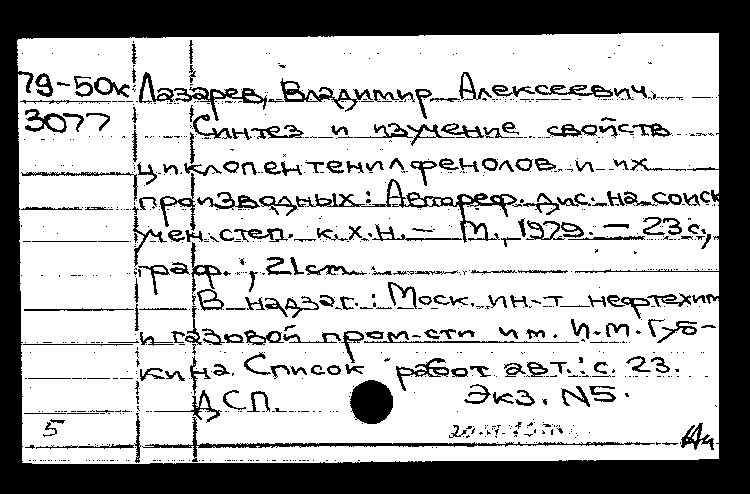 79-50к Лазарев, Владимир Алексеевич.
3077 Синтез и изучение свойств
циклопентенилфенолов и их
производных: Автореф. дис. на соиск
учен. степ. к.х.н. — М., 1979. — 23 с.,
граф.; 21 см.
В надзаг.: Моск. ин-т нефтехим
и газовой пром-сти им. И.М. Губ-
кина. Список работ авт.: с. 23.
ДСП. Экз. N5.
5